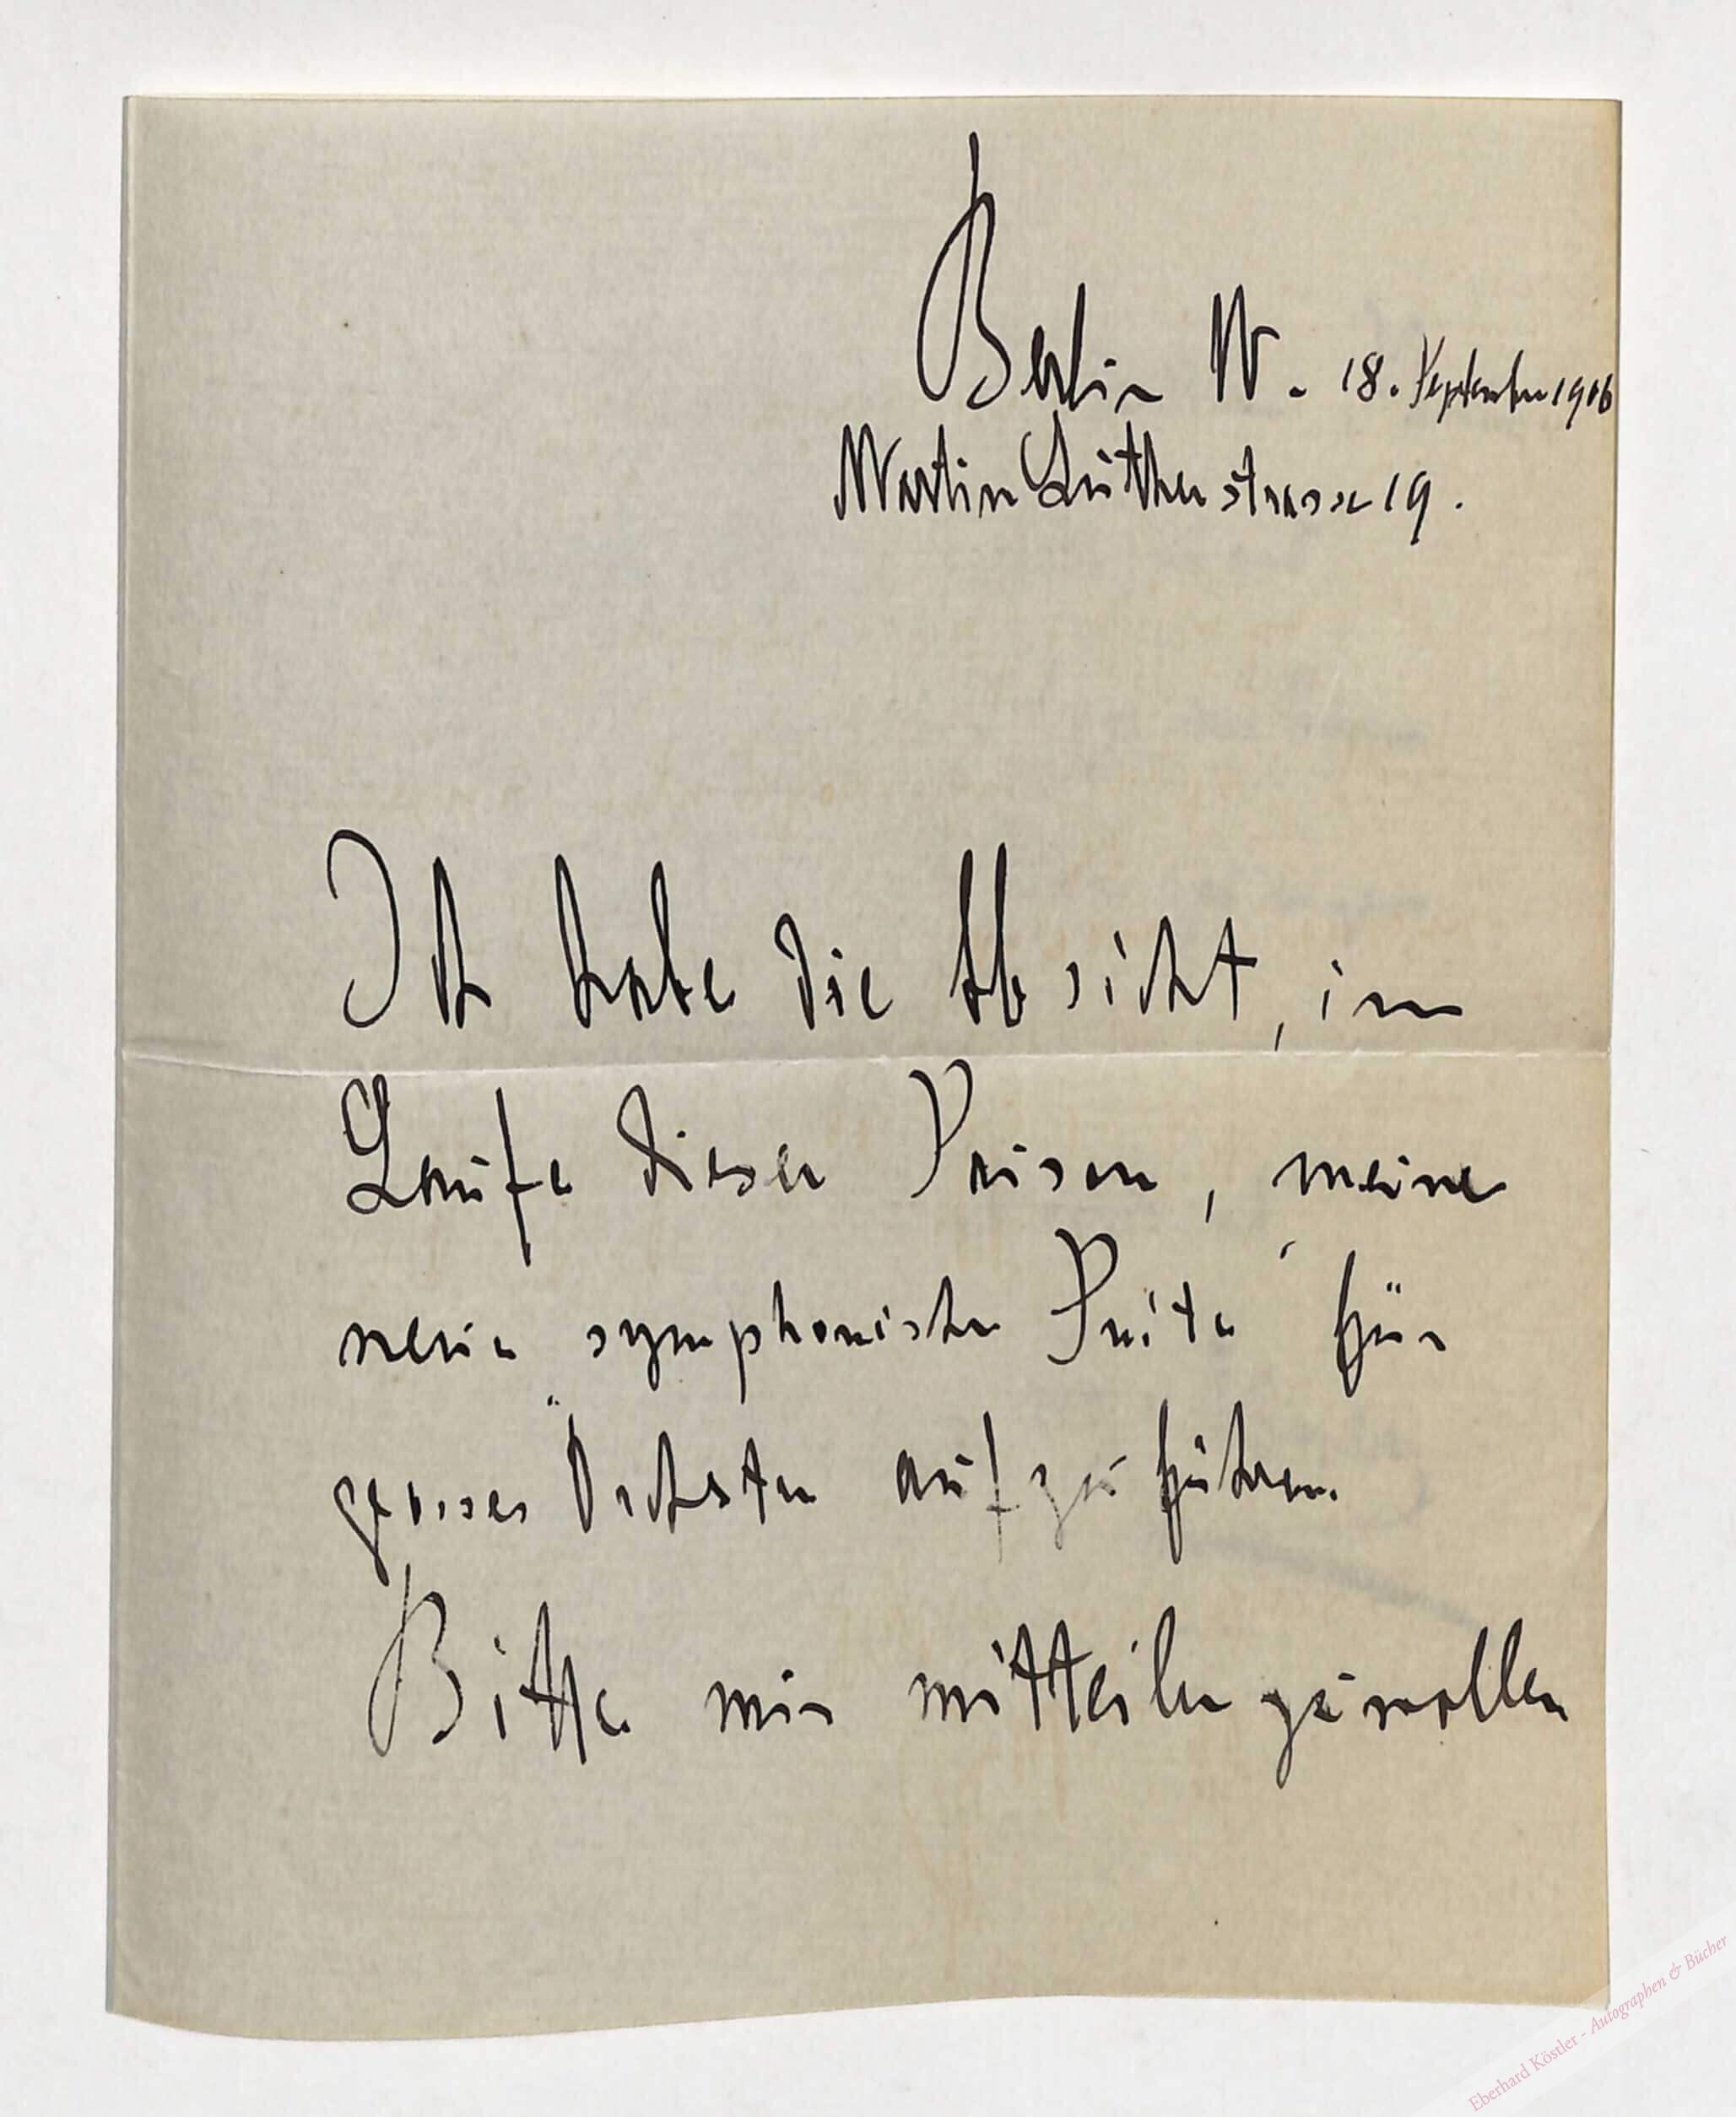 Berlin W. 18. September 1906
Martin Lutherstrasse 19.
Ich habe die Absicht, im
Laufe dieser Saison, meine
neue symphonische Suite für
grosses Orchester aufzuführen.
Bitte mir mitteilen zu wollen
Eberhard Köstler - Autographen & Bücher